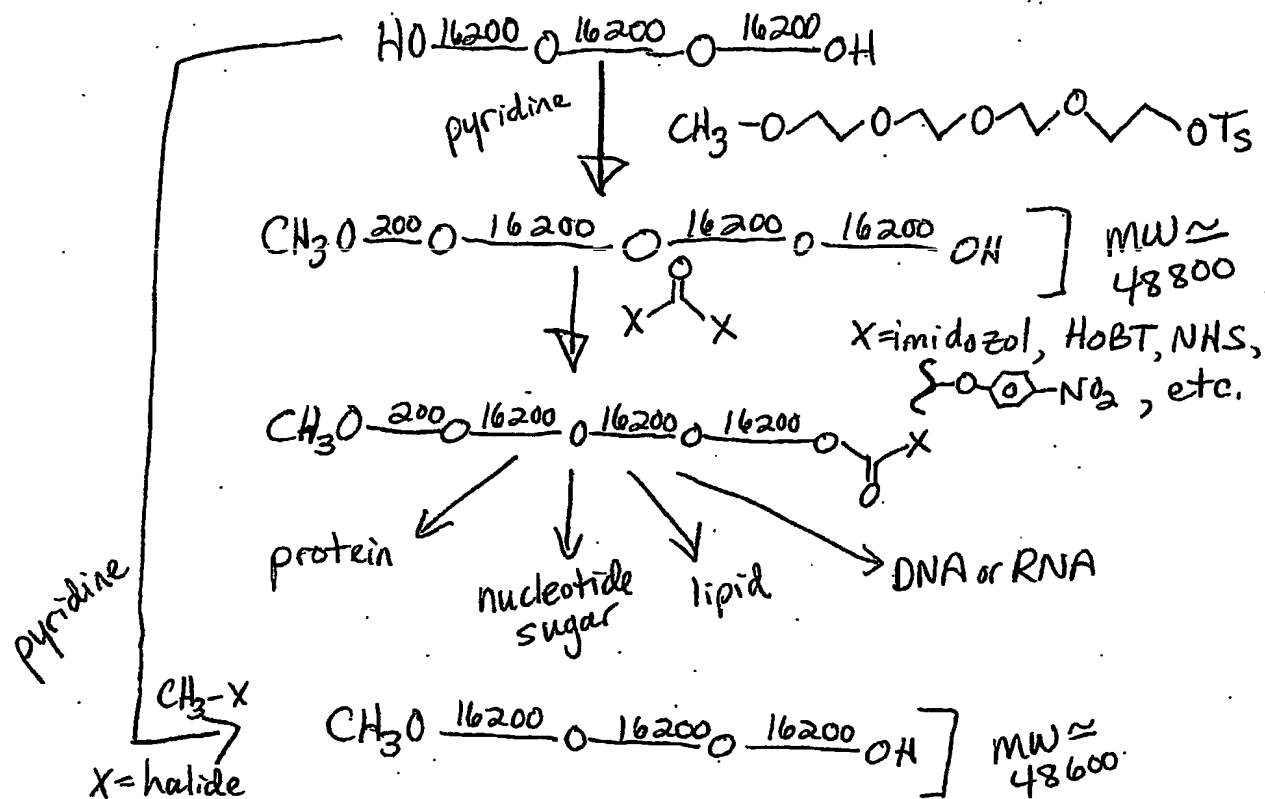 HO 16200 O 16200 O 16200 OH
pyridine
CH3-O O O O OTs
CH3O 200 O 16200 O 16200 O 16200 OH ] MW ≃
48800
O
X X
X=imidozol, HOBT, NHS,
O-NO2, etc.
CH3O 200 O 16200 O 16200 O 16200 O X
O
protein
nucleotide
sugar
lipid
DNA or RNA
pyridine
CH3-X
X=halide
CH3O 16200 O 16200 O 16200 OH ] MW ≃
48600